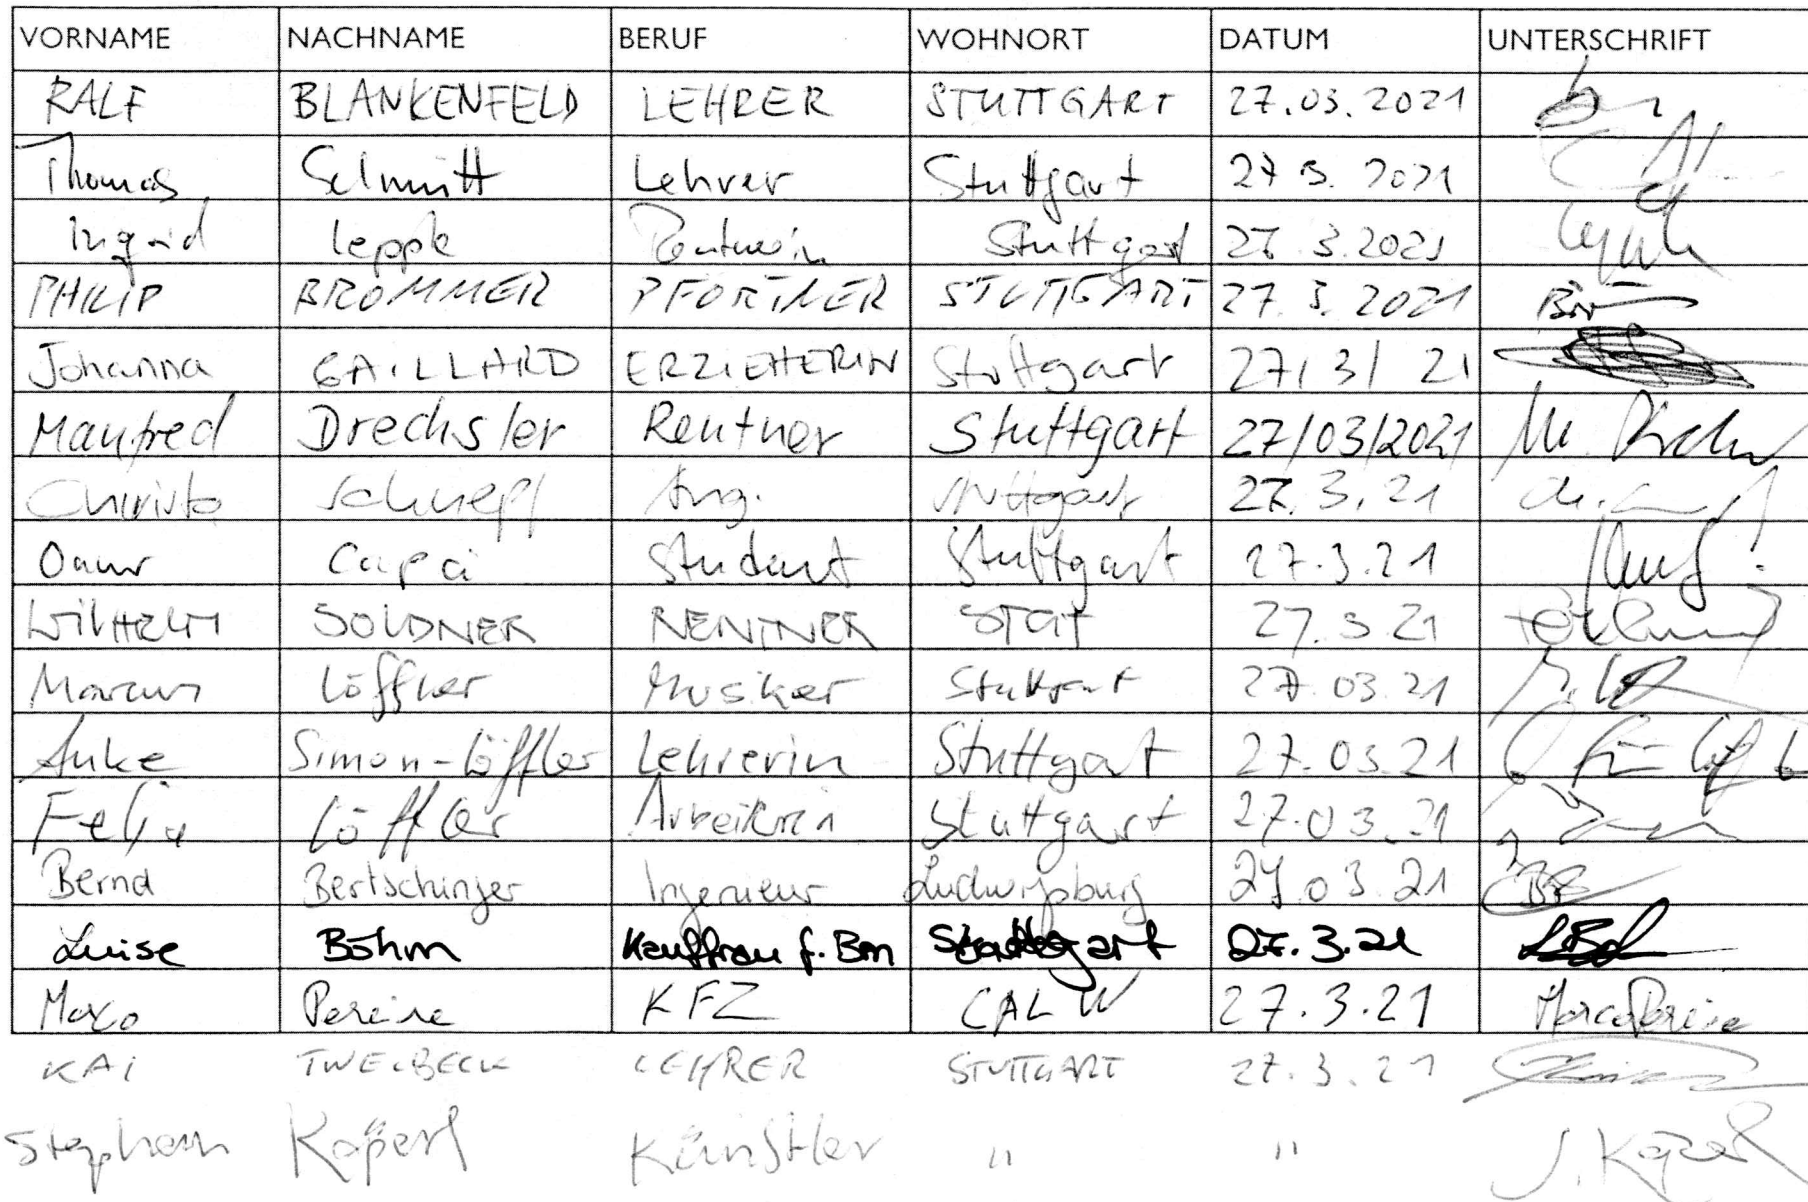 VORNAME NACHNAME BERUF WOHNORT DATUM UNTERSCHRIFT
RALF BLANKENFELD LEHRER STUTTGART 27.03.2021
Thomas Schmitt Lehrer Stuttgart 27 3. 2021
Ingrid Lepple Rentnerin Stuttgart 27. 3. 2021
PHILIP BROMMER PFÖRTNER STUTTGART 27. 3. 2021
Johanna GAILLARD ERZIEHERIN Stuttgart 27/3/21
Manfred Drechsler Rentner Stuttgart 27/03/2021
Christa Schnepf Ang. Stuttgart 27.3.21
Onur Student Stuttgart 27.3.21
WILHELM SOLDNER RENTNER STGT 27.3.21
Marcus Löffler Musiker Stuttgart 27.03.21
Anke Simon-Löffler Lehrerin Stuttgart 27.03.21
Löffler Stuttgart 27.03.21
Bernd Bertschinger Ingenieur Ludwigsburg 27.03.21
Luise Böhm Kauffrau f. Bm Stuttgart 27.3.21
Marco Pereira KFZ CALW 27.3.21 Marco Pereira
KAI TWELBECK LEHRER STUTTGART 27.3.21
Stephan Köperl Künstler " " S. Köperl